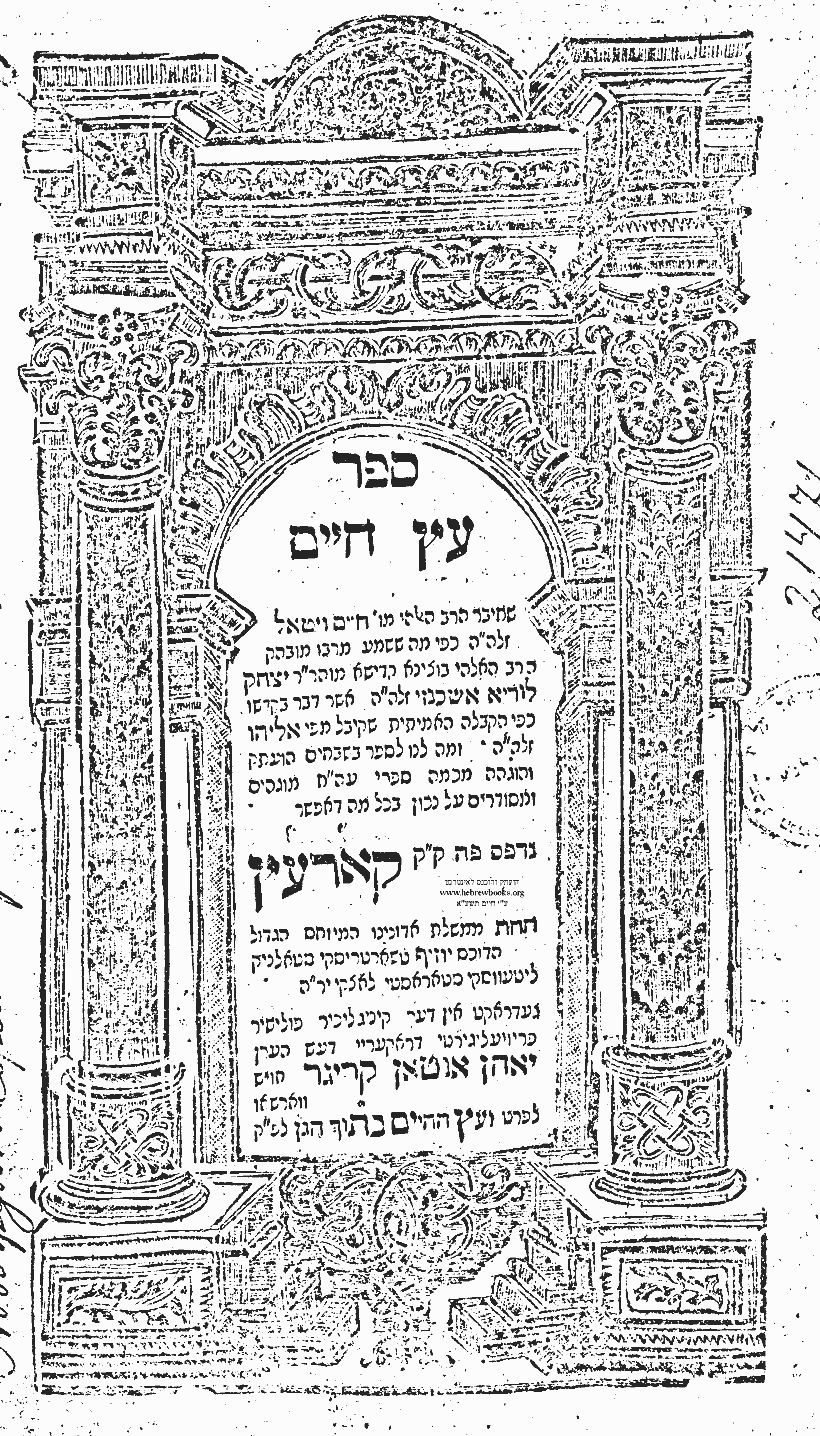 ספר
עץ חיים
שחיבר הרב האלהי מו' חיים ויטאל
זלה"ה כפי מה ששמע מרבו מובהק
הרב האלהי בוצינא קדישא מוהר"ר יצחק
לוריא אשכנזי זלה"ה אשר דבר בקדשו
כפי הקבלה האמיתית שקיבל מפי אליהו
זלה"ה ומה לנו לספר בשבחים הועתק
והוגהה מכמה ספרי עה"ח מוגהים
ומסודרים על נכון בכל מה דאפשר
נדפס פה ק"ק קארעין
הועתק והוכנס לאינטרנט
www.hebrewbooks.org
ע"י חיים תשע"א
תחת ממשלת אדונינו המיוחס הגדול
הדוכס יוזיף טשארטריסקי סטאלניק
ליטעווסקי סטאראסטי לאצקי יר"ה
געדראקט אין דער קיניגליכיר פולישיר
פריוויעליגירטי דראקעריי דעש הערן
יאהן אנטאן קריגר חויש
ווארשאו
לפרט ועץ החיים בתוך הגן לפ"ק
2147